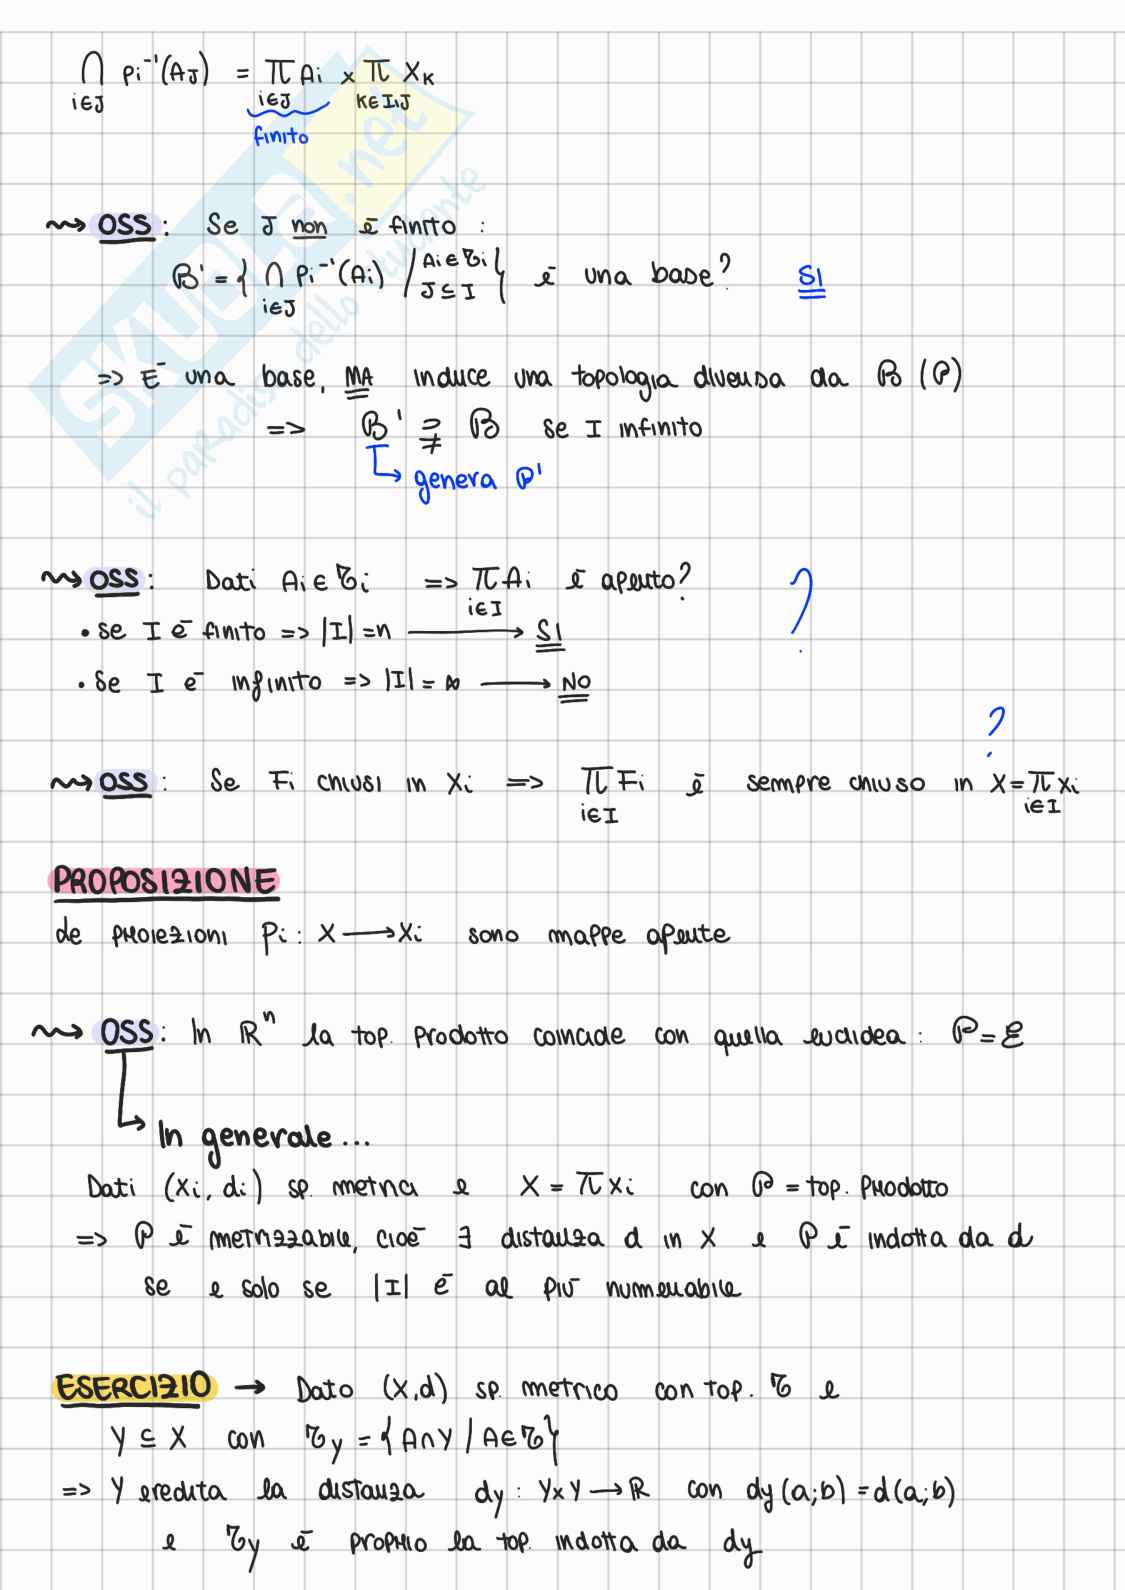 ⋂ pi⁻¹(AJ) = π Ai × π XK
i∈J i∈J K∈I\J
finito
⇝ OSS: Se J non è finito :
B' = { ⋂ Pi⁻¹(Ai) / Ai ∈ τi } è una base? SI
i∈J J ⊆ I
=> E' una base, MA induce una topologia diversa da B (P)
=> B' ⊋ B se I infinito
↳ genera P'
⇝ OSS: Dati Ai ∈ τi => π Ai è aperto? ?
i∈I
• se I è finito => |I| = n ⟶ SI
• se I è infinito => |I| = ∞ ⟶ NO
?
⇝ OSS: Se Fi chiusi in Xi => π Fi è sempre chiuso in X = π Xi
i∈I i∈I
PROPOSIZIONE
Le proiezioni Pi : X ⟶ Xi sono mappe aperte
⇝ OSS: In ℝⁿ la top. prodotto coincide con quella euclidea : P = E
↳ In generale ...
Dati (Xi, di) sp. metrici e X = π Xi con P = top. Prodotto
=> P è metrizzabile, cioè ∃ distanza d in X e P è indotta da d
se e solo se |I| è al più numerabile
ESERCIZIO → Dato (X,d) sp. metrico con top. τ e
Y ⊆ X con τy = { A∩Y / A∈τ }
=> Y eredita la distanza dy : Y×Y ⟶ ℝ con dy (a;b) = d(a;b)
e τy è proprio la top. indotta da dy
SKUOLA.net
il paradiso dello studente